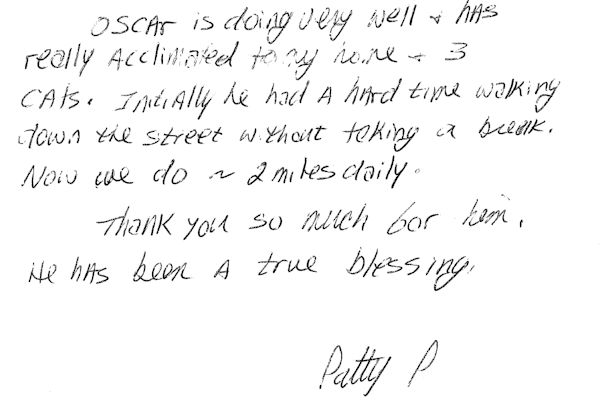 OSCAr is doing very well + hAs
really Acclimated to my home + 3
CAts. InitiAlly he had A hArd time walking
down the street without taking a break.
Now we do ~ 2 miles daily.
Thank you so much for him.
He hAs been A true blessing.
Patty P